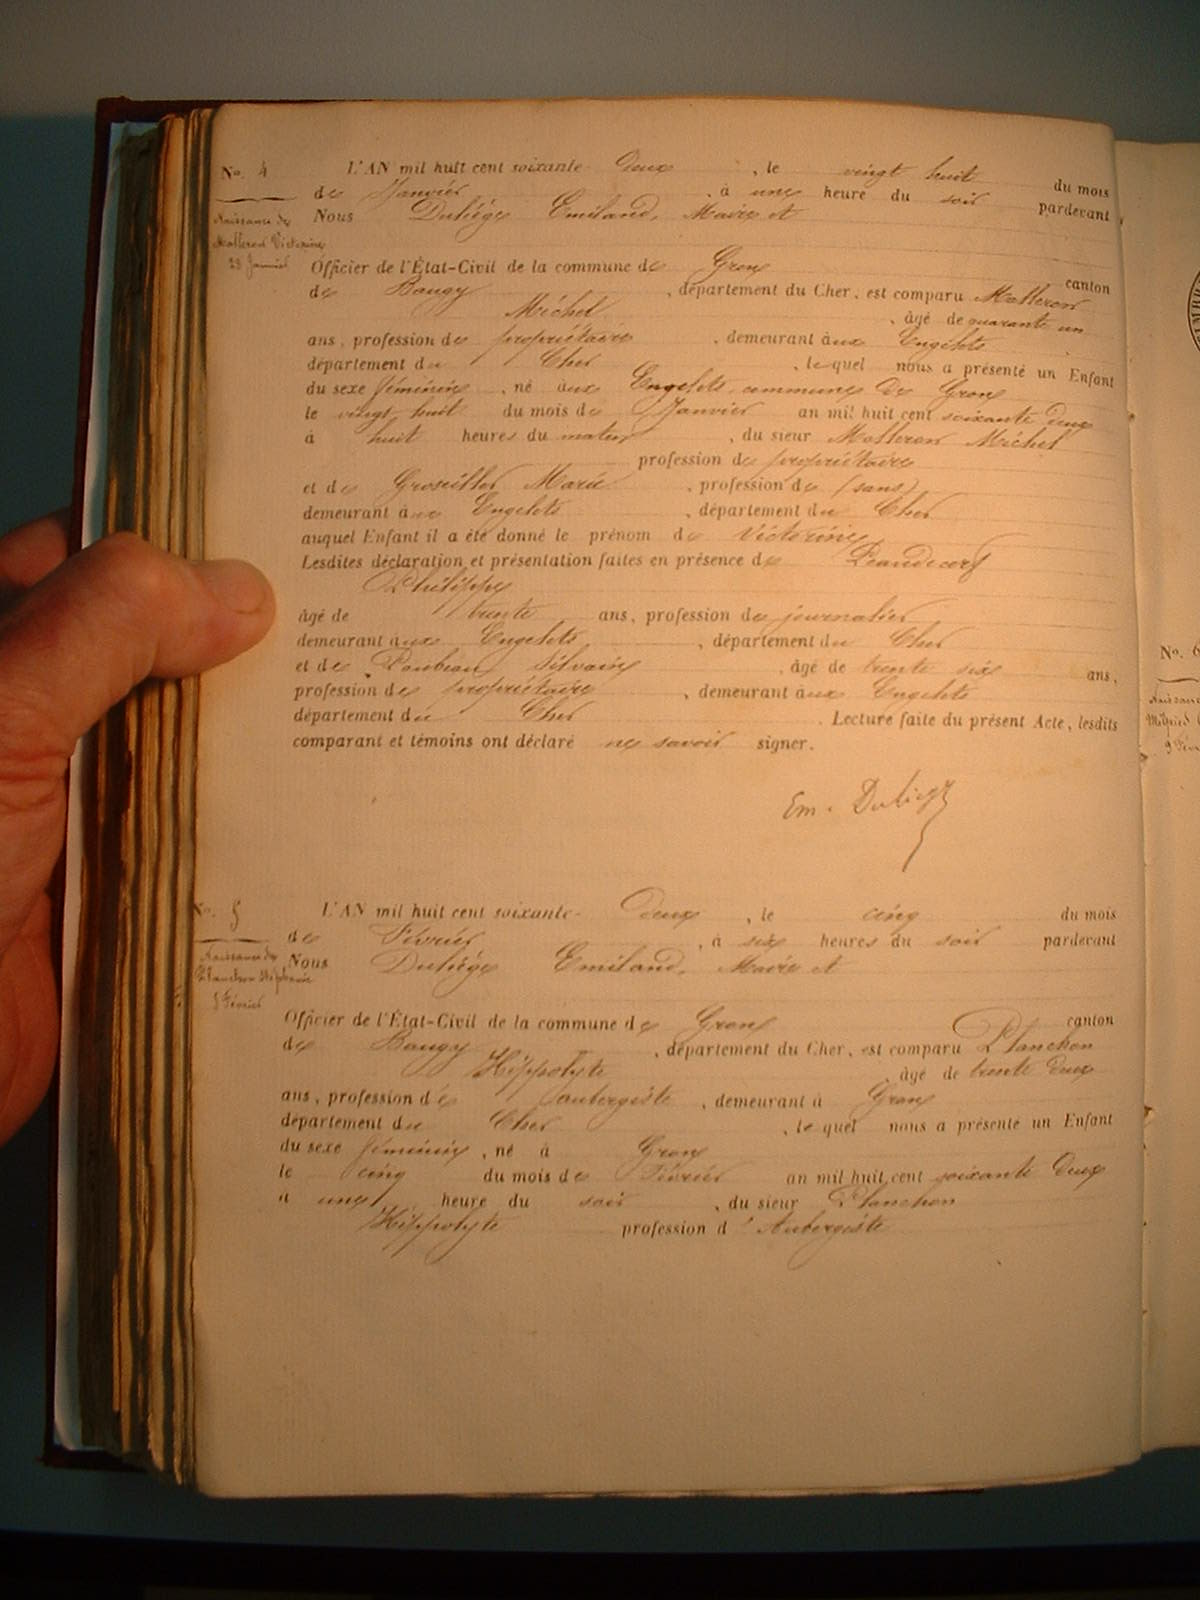 No. 4
L'AN mil huit cent soixante- deux , le vingt huit du mois
de Janvier , à une heure du soir pardevant
Naissance de
Malleron Victorine
28 Janvier
Nous Duliège Emiland, Maire et
Officier de l'État-Civil de la commune de Gron canton
de Baugy , département du Cher, est comparu Malleron
Michel , âgé de quarante un
ans, profession de propriétaire , demeurant aux Engelets
département du Cher , lequel nous a présenté un Enfant
du sexe féminin , né aux Engelets commune de Gron
le vingt huit du mois de Janvier an mil huit cent soixante deux
à huit heures du matin , du sieur Malleron Michel
profession de propriétaire
et de Groseiller Marie , profession de (sans)
demeurant aux Engelets , département du Cher
auquel Enfant il a été donné le prénom de Victorine
Lesdites déclaration et présentation faites en présence de
Philippe
âgé de trente ans, profession de journalier
demeurant aux Engelets , département du Cher
et de Silvain , âgé de trente six ans,
profession de propriétaire , demeurant aux Engelets
département du Cher . Lecture faite du présent Acte, lesdits
comparant et témoins ont déclaré ne savoir signer.
Em. Duliège
No. 5
L'AN mil huit cent soixante- deux , le cinq du mois
de Février , à six heures du soir pardevant
Naissance de
Planchon Stéphanie
5 Février
Nous Duliège Emiland, Maire et
Officier de l'État-Civil de la commune de Gron canton
de Baugy , département du Cher, est comparu Planchon
Hippolyte , âgé de trente deux
ans, profession d'é aubergiste , demeurant à Gron
département du Cher , lequel nous a présenté un Enfant
du sexe féminin , né à Gron
le cinq du mois de Février an mil huit cent soixante deux
à une heure du soir , du sieur Planchon
Hippolyte profession d' Aubergiste
No. 6
Naissance
9 Févr